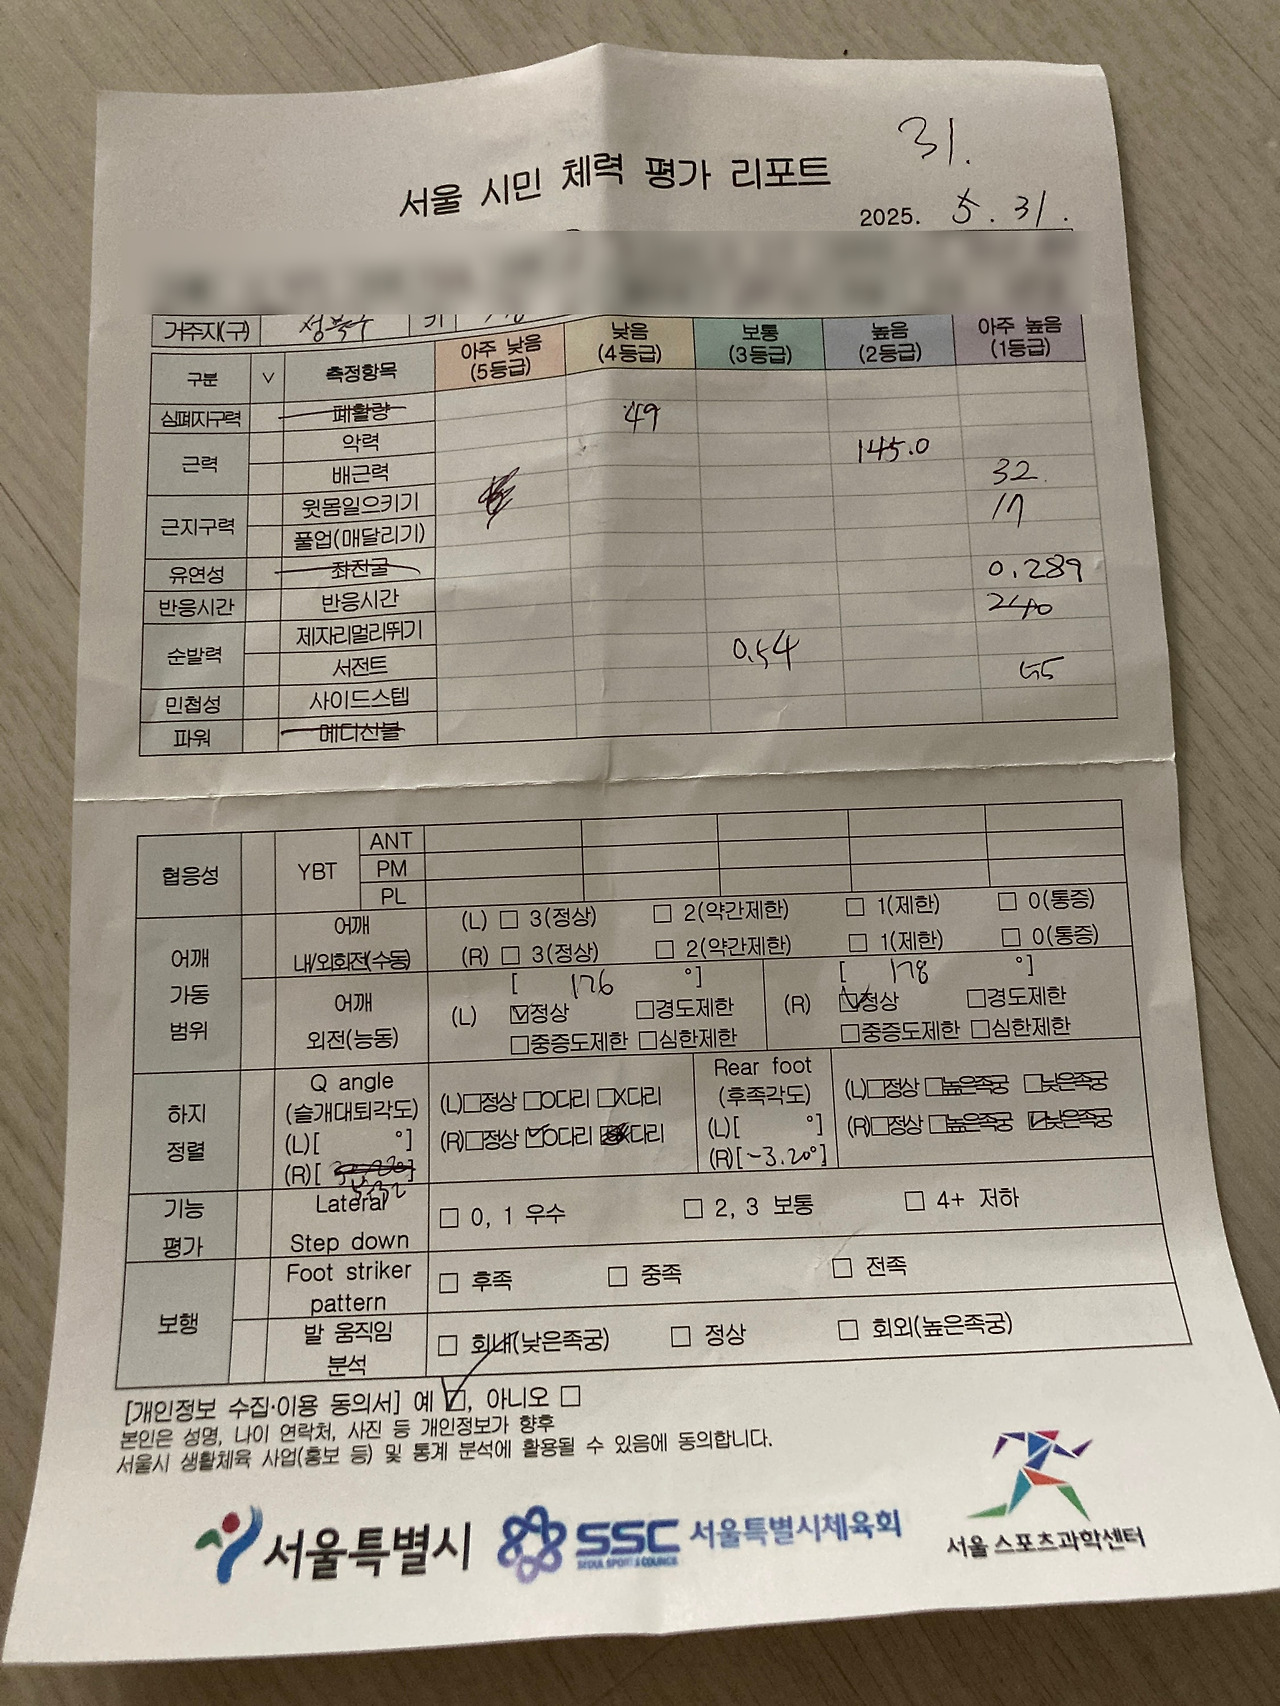 31.
서울 시민 체력 평가 리포트
2025. 5. 31.
거주지(구) 성북구 키
구분 ∨ 측정항목 아주 낮음 (5등급) 낮음 (4등급) 보통 (3등급) 높음 (2등급) 아주 높음 (1등급)
심폐지구력 폐활량
근력 악력 49
배근력 145.0
근지구력 윗몸일으키기 32
풀업(매달리기) 17
유연성 좌전굴
반응시간 반응시간 0.289
순발력 제자리멀리뛰기 240
서전트 0.54
민첩성 사이드스텝 55
파워 메디신볼
협응성 YBT ANT
PM
PL
어깨 가동 범위 어깨 내/외회전(수동) (L) □ 3(정상) □ 2(약간제한) □ 1(제한) □ 0(통증)
(R) □ 3(정상) □ 2(약간제한) □ 1(제한) □ 0(통증)
어깨 외전(능동) (L) [ 176 °] ☑정상 □경도제한 (R) [ 178 °] ☑정상 □경도제한
□중증도제한 □심한제한 □중증도제한 □심한제한
하지 정렬 Q angle (슬개대퇴각도) (L)[ °] (L)□정상 □O다리 □X다리 Rear foot (후족각도) (L)[ °] (L)□정상 □높은족궁 □낮은족궁
(R)[ °] 5.32 (R)□정상 ☑O다리 X다리 (R)[-3.20°] (R)□정상 □높은족궁 ☑낮은족궁
기능 평가 Lateral Step down □ 0, 1 우수 □ 2, 3 보통 □ 4+ 저하
보행 Foot striker pattern □ 후족 □ 중족 □ 전족
발 움직임 분석 □ 회내(낮은족궁) □ 정상 □ 회외(높은족궁)
[개인정보 수집·이용 동의서] 예 ☑, 아니오 □
본인은 성명, 나이 연락처, 사진 등 개인정보가 향후
서울시 생활체육 사업(홍보 등) 및 통계 분석에 활용될 수 있음에 동의합니다.
서울특별시 SSC SEOUL SPORTS COUNCIL 서울특별시체육회 서울 스포츠과학센터